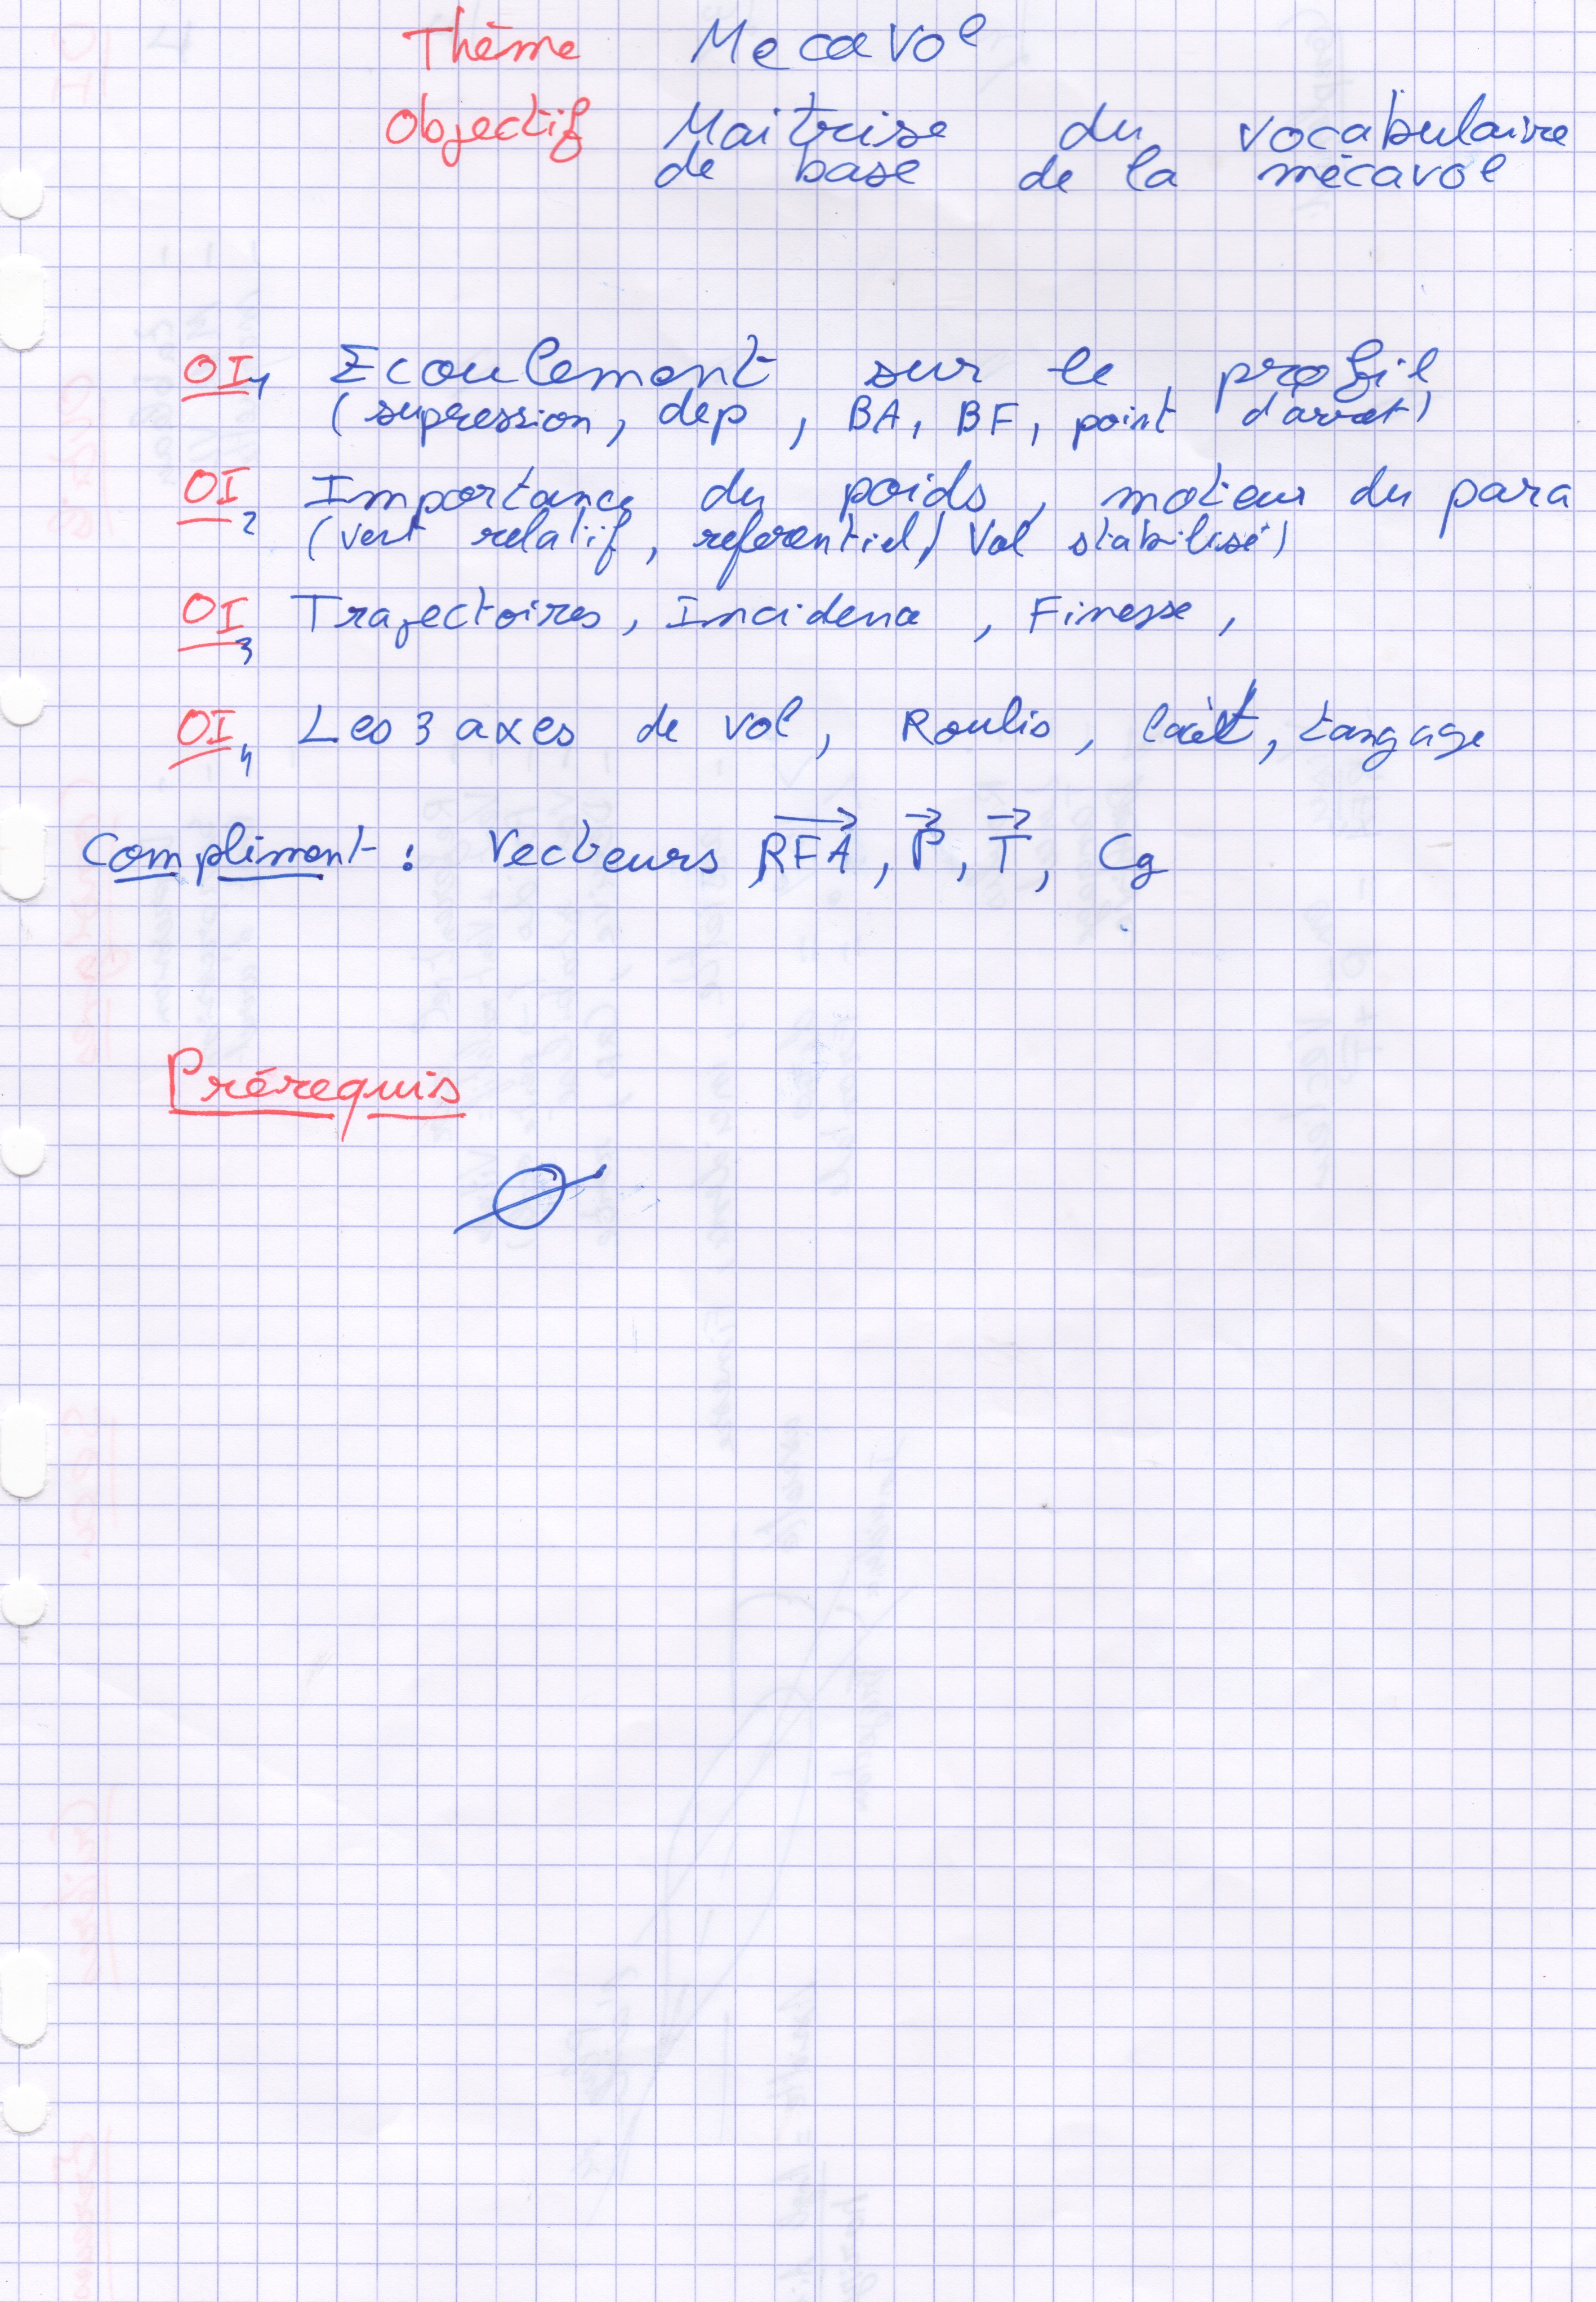 Thème Mecavol
Objectif Maitrise du vocabulaire
de base de la mécavol
OI1 Ecoulement sur le profil
(supression, dep, BA, BF, point d'arret)
OI2 Importance du poids, moteur du para
(vent relatif, referentiel, Vol stabilisé)
OI3 Trajectoires, Incidence, Finesse,
OI4 Les 3 axes de vol, Roulis, lacet, tangage
Compliment : Vecteurs RFA, P, T, Cg
Prérequis
Ø